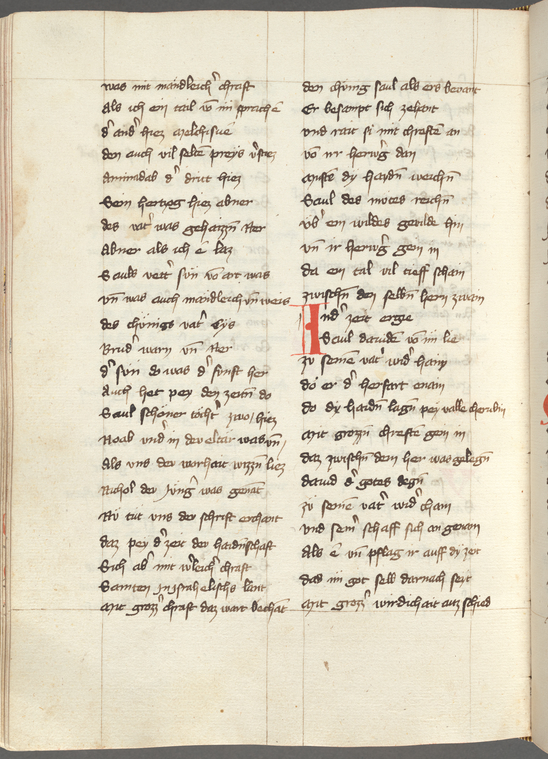 was mit mandleicher chraft
Als ich ein tail vo im sprache
d' and' hiez melchisue
den auch vil selten preys
Aminadab d' drit hiez
Sein hertzog hiez abner
des vat' was gehaizzen Ner
Abner als ich e laz
Sauls vett' sun vo art was
vn was auch mandleich vn weis
des chunigs vat' Cys
Brud' warn vn Ner
d' sun do was d' funst her
Auch het pey den zeiten do
Saul schoner tocht' zwo / hiez
Meab vnd in der eltar was vn
Als vns der warhait wizzn liez
Michol der Jung' was genant
Nu tut vns der schrift erchant
daz pey d' zeit der haidenschaft
Sich ab' mit chraft
Samten in israhelischs lant
Mit grozz' chraft daz wart bechant
den chunig saul als ers bevant
Er besampt sich zehant
vnd rait si mit chreften an
vo ir herb'g dan
Musten dy haiden weichn
Saul des motes reichn
vb' ein wildes geuilde hin
vn ir herb'g gein in
da ein tal vil tieff schain
zwischn den selbn hern zwain
Ind' zeit ergie
Saul dauiden vo im lie
zu seinem vat' wid' haim
do er d' herfart enain
do dy haiden lagen pey valle cherubin
Mit grozzn chreften gein in
daz zwischn dem her was gelegn
dauid d' gotes degn
zu seinem vat' wid' cham
vnd sein' schaff sich an genam
Als e vn pflag ir auff dy zeit
das im got selb darnach seit
Mit grozz' wirdichait auz schied